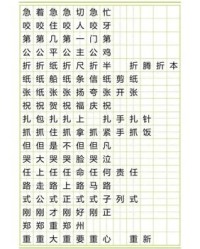 急 着急 急切 急忙
咬 咬住 咬人 咬牙
第 第几 第一 门第
公 公平 公主 公鸡
折 折纸 折尺 折半 折腾 折本
纸 纸船 纸条 信纸 剪纸
张 纸张 张扬 夸张 开张
祝 祝贺 祝福 庆祝
扎 包扎 扎上 扎手 扎针
抓 抓住 抓拿 抓紧 抓饭
但 但是 不但 但凡
哭 大哭 哭脸 哭泣
任 上任 任命 任何 责任
路 走路 上路 马路
式 公式 正式 式子 列式
刚 刚才 刚好 刚正
郑 郑重 郑州
重 重大 重要 重心 重新